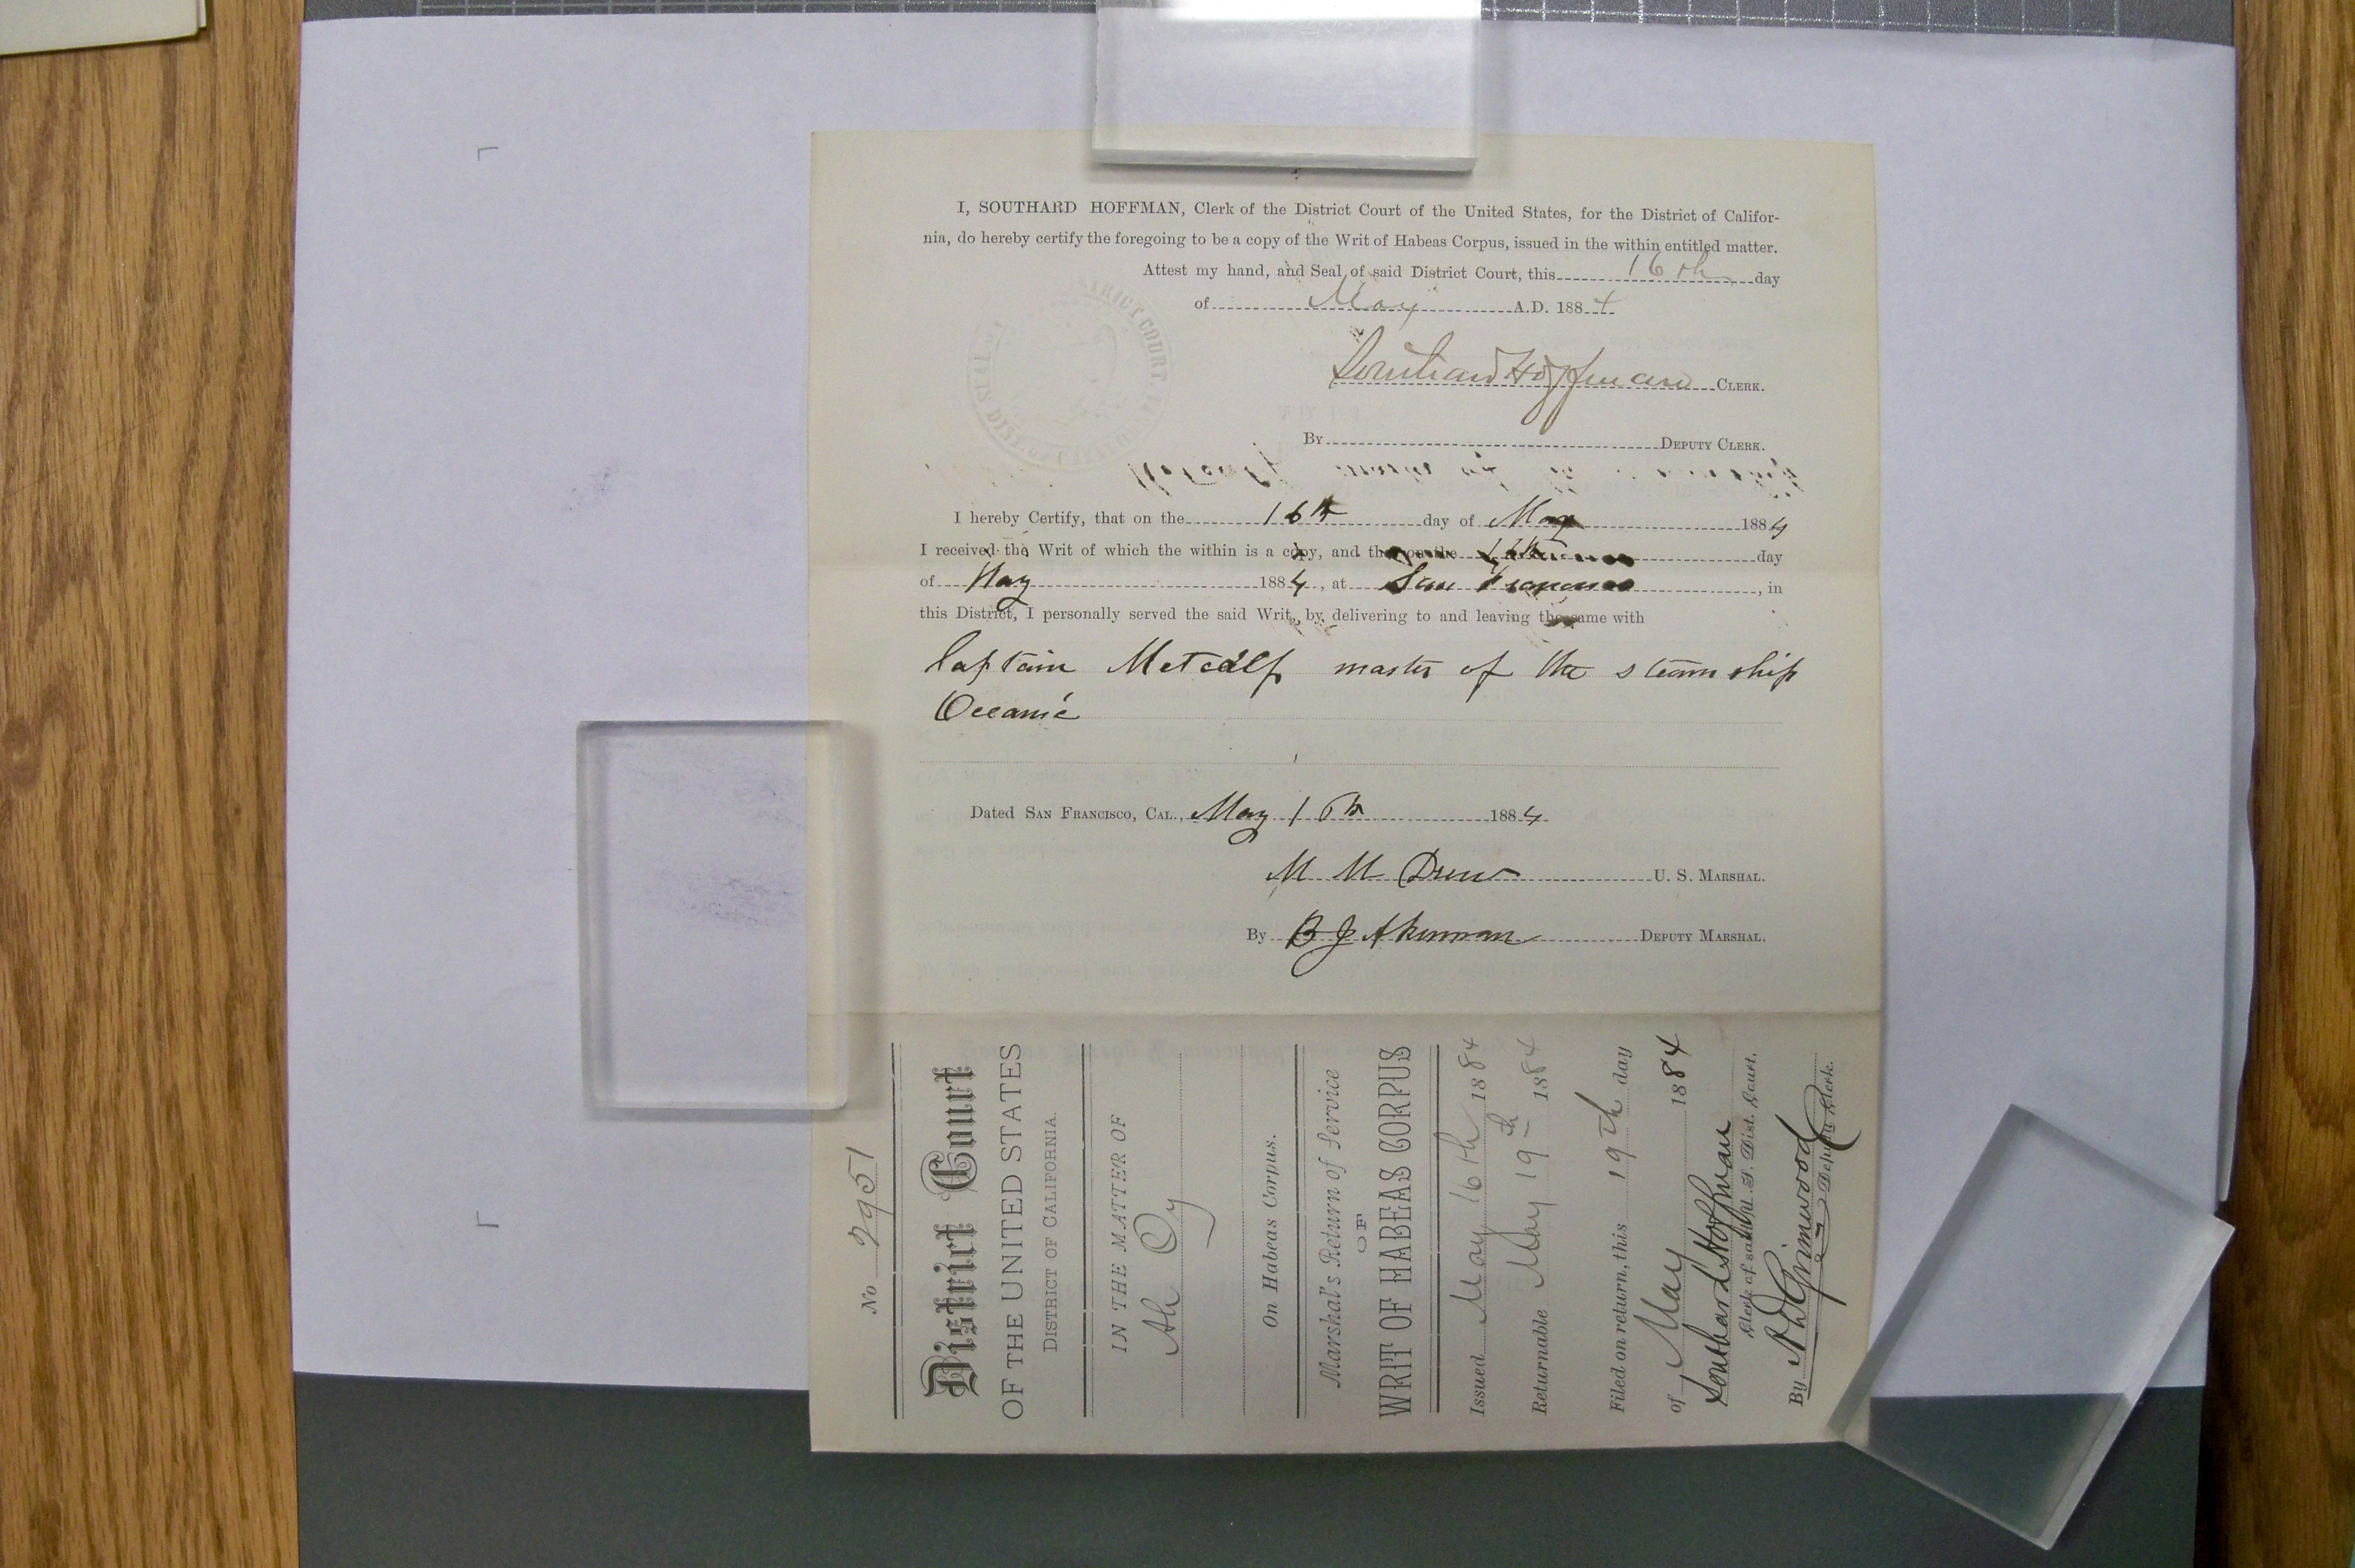 I, SOUTHARD HOFFMAN, Clerk of the District Court of the United States, for the District of Califor-
nia, do hereby certify the foregoing to be a copy of the Writ of Habeas Corpus, issued in the within entitled matter.
Attest my hand, and Seal of said District Court, this 16th day
of May A.D. 1884
Southard Hoffman CLERK.
By DEPUTY CLERK.
I hereby Certify, that on the 16th day of May 1884
I received the Writ of which the within is a copy, and that on the 16th day
of May 1884, at San Francisco, in
this District, I personally served the said Writ, by delivering to and leaving the same with
Captain Metcalf master of the steam ship
Oceanic
Dated SAN FRANCISCO, CAL., May 16th 1884
M M Drew U. S. MARSHAL.
By B J Akerman DEPUTY MARSHAL.
No 2951
District Court
OF THE UNITED STATES
DISTRICT OF CALIFORNIA.
IN THE MATTER OF
Ah Oy
On Habeas Corpus.
Marshal's Return of Service
OF
WRIT OF HABEAS CORPUS
Issued May 16th 1884
Returnable May 19th 1884
Filed on return, this 19th day
of May 1884
Southard Hoffman
Clerk of said U. S. Dist. Court,
By Grimwood
Deputy Clerk.